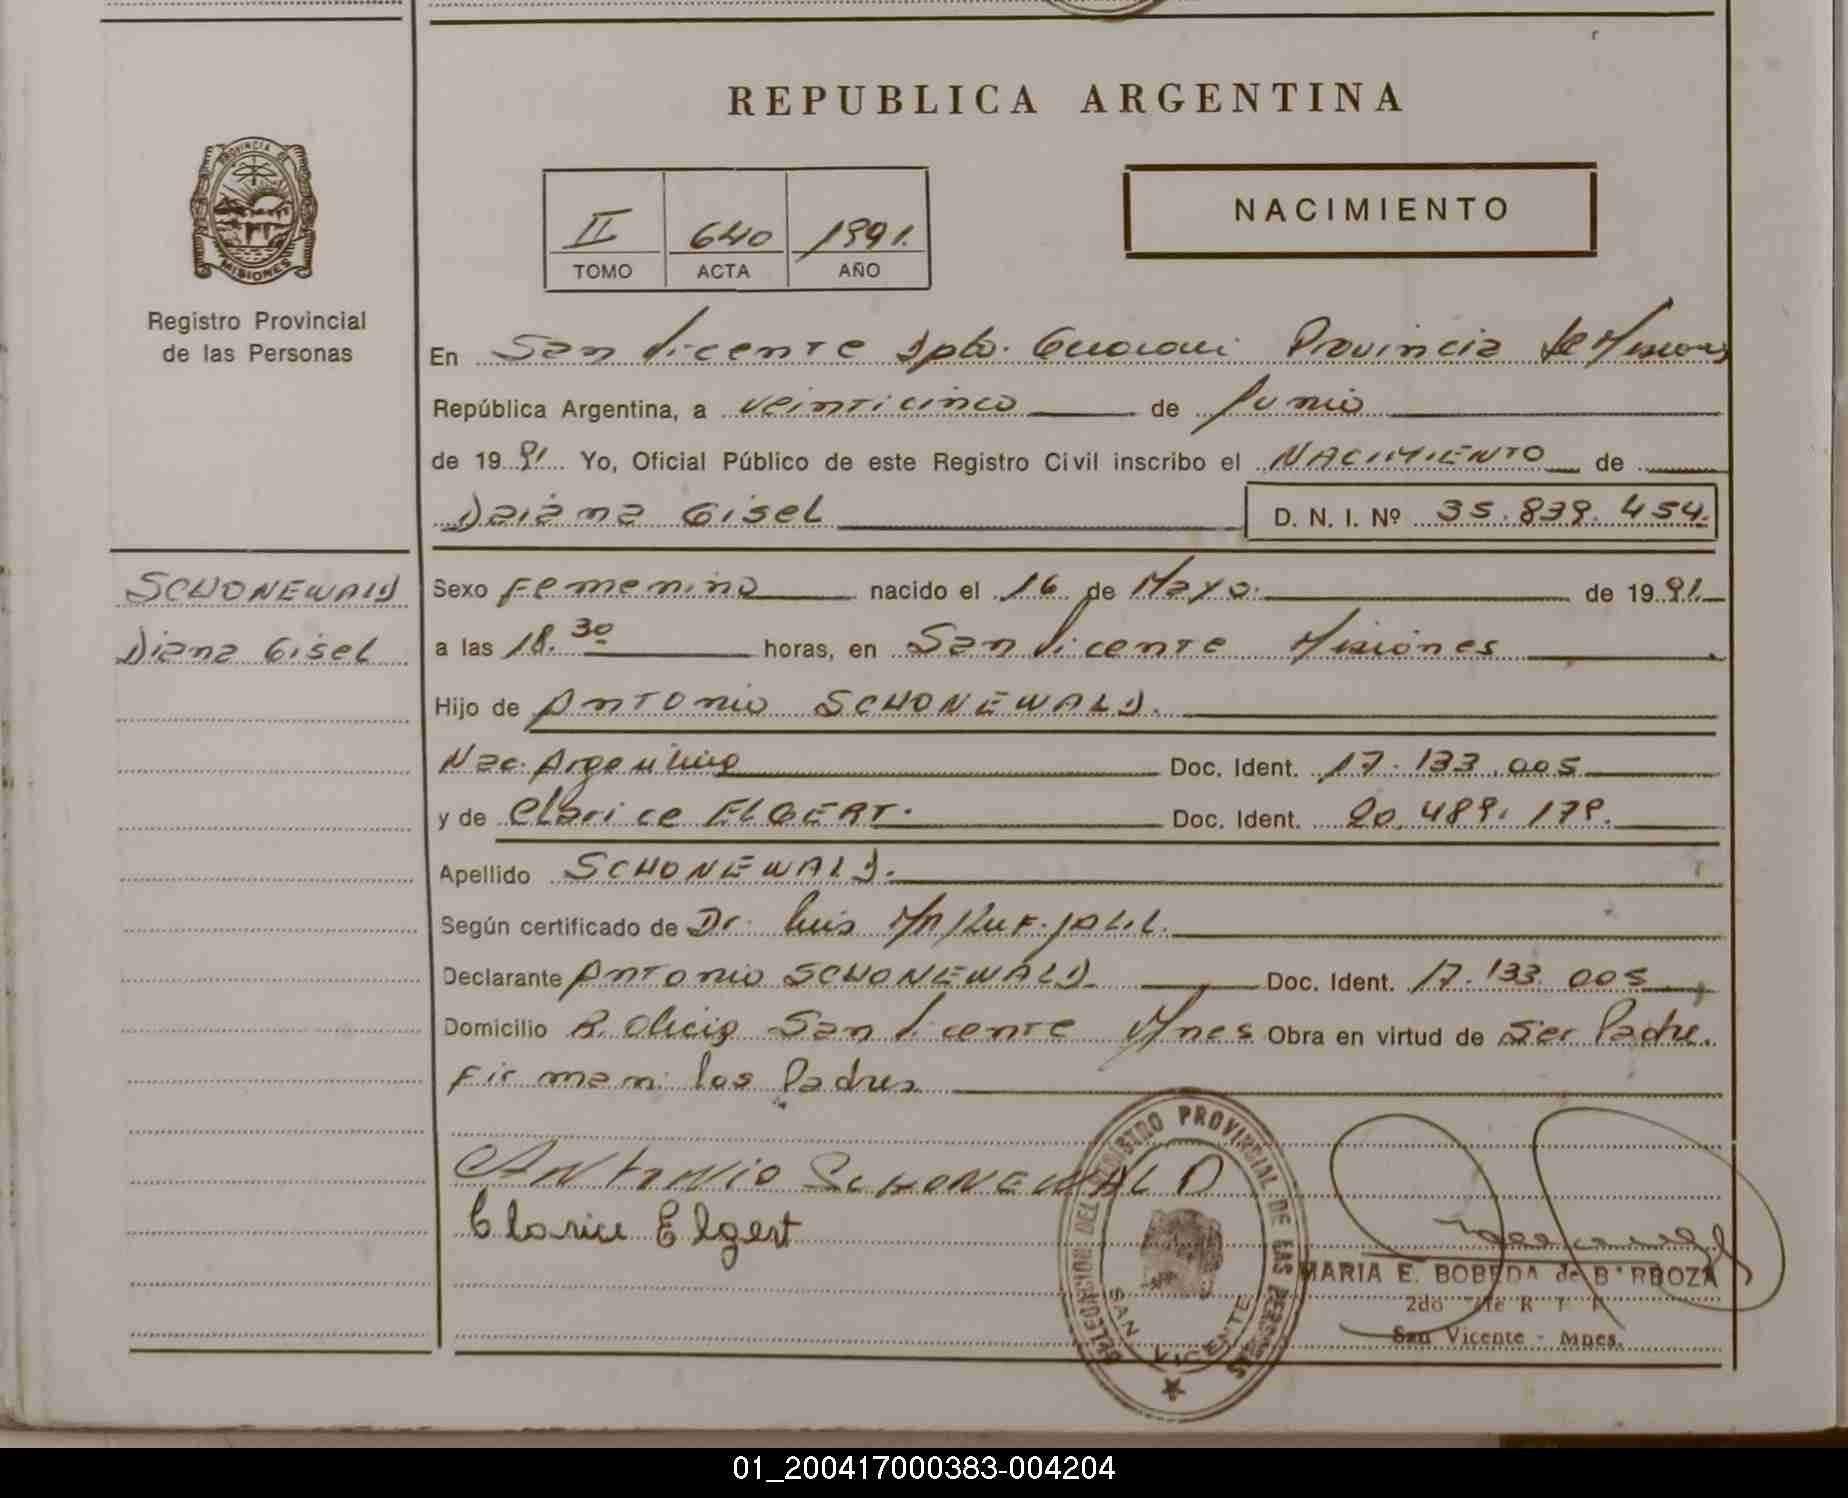 REPUBLICA ARGENTINA
PROVINCIA DE
MISIONES
Registro Provincial
de las Personas
II 640 1991.
TOMO ACTA AÑO
NACIMIENTO
En San Vicente Dpto. Guarani Provincia de Misiones
República Argentina, a veinticinco de Junio
de 1991 Yo, Oficial Público de este Registro Civil inscribo el NACIMIENTO de
Daiana Gisel D. N. I. Nº 35.839.454.
SCHONEWALD
Diana Gisel
Sexo Femenino nacido el 16 de Mayo. de 1991.
a las 18.30 horas, en San Vicente Misiones
Hijo de Antonio SCHONEWALD.
Nac. Argentino Doc. Ident. 17.133.005
y de Clarice ELGERT. Doc. Ident. 20.489.179.
Apellido SCHONEWALD.
Según certificado de Dr. Luis
Declarante Antonio SCHONEWALD Doc. Ident. 17.133.005
Domicilio San Vicente Mnes Obra en virtud de Ser Padre.
Firman: los Padres
ANTONIO SCHONEWALD
Clarice Elgert
DELEGACION DEL REGISTRO PROVINCIAL DE LAS PERSONAS
SAN VICENTE
MARIA E. BOBEDA de BARBOZA
2do
San Vicente - Mnes.
01_200417000383-004204